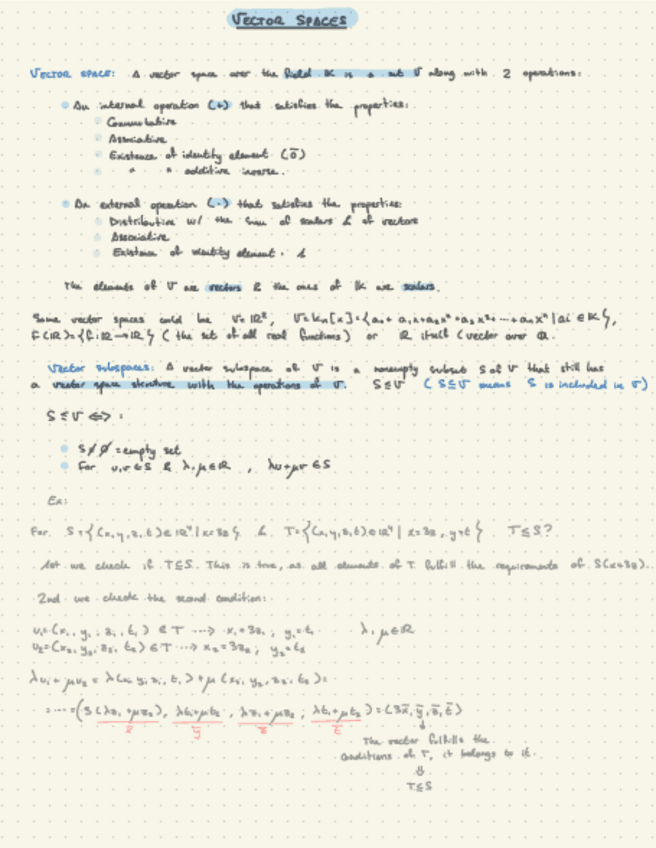 VECTOR SPACES
VECTOR SPACE: A vector space over the field K is a set V along with 2 operations:
An internal operation (+) that satisfies the properties:
Commutative
Associative
Existence of identity element (0̄)
" " additive inverse.
An external operation (·) that satisfies the properties:
Distributive w/ the sum of scalars & of vectors
Associative
Existence of identity element. 1
The elements of V are vectors & the ones of K are scalars.
Some vector spaces could be V=ℝ², V=Kₙ[x]={a₀+a₁x+a₂x²+a₃x³+...+aₙxⁿ|aᵢ∈K},
F(ℝ)={f:ℝ→ℝ} (the set of all real functions) or ℝ itself (vector over Q.
Vector subspaces: A vector subspace of V is a nonempty subset S of V that still has
a vector space structure with the operations of V. S≤V (S⊆V means S is included in V)
S≤V ⟺ :
S≠∅=empty set
For u,v∈S & λ,μ∈ℝ, λu+μv∈S
Ex:
For S={(x,y,z,t)∈ℝ⁴|x=3z} & T={(x,y,z,t)∈ℝ⁴|x=3z, y=t} T≤S?
1st we check if T⊆S. This is true, as all elements of T fulfill the requirements of S(x=3z).
2nd we check the second condition:
u₁=(x₁, y₁, z₁, t₁)∈T ⇢ x₁=3z₁; y₁=t₁ λ,μ∈ℝ
u₂=(x₂, y₂, z₂, t₂)∈T ⇢ x₂=3z₂; y₂=t₂
λu₁+μu₂=λ(x₁ y₁ z₁, t₁)+μ(x₂, y₂, z₂, t₂)=
=...=(3(λz₁+μz₂), λt₁+μt₂, λz₁+μz₂, λt₁+μt₂)=(3z̄, ȳ, z̄, t̄)
The vector fulfills the
conditions of T, it belongs to it.
⇓
T≤S